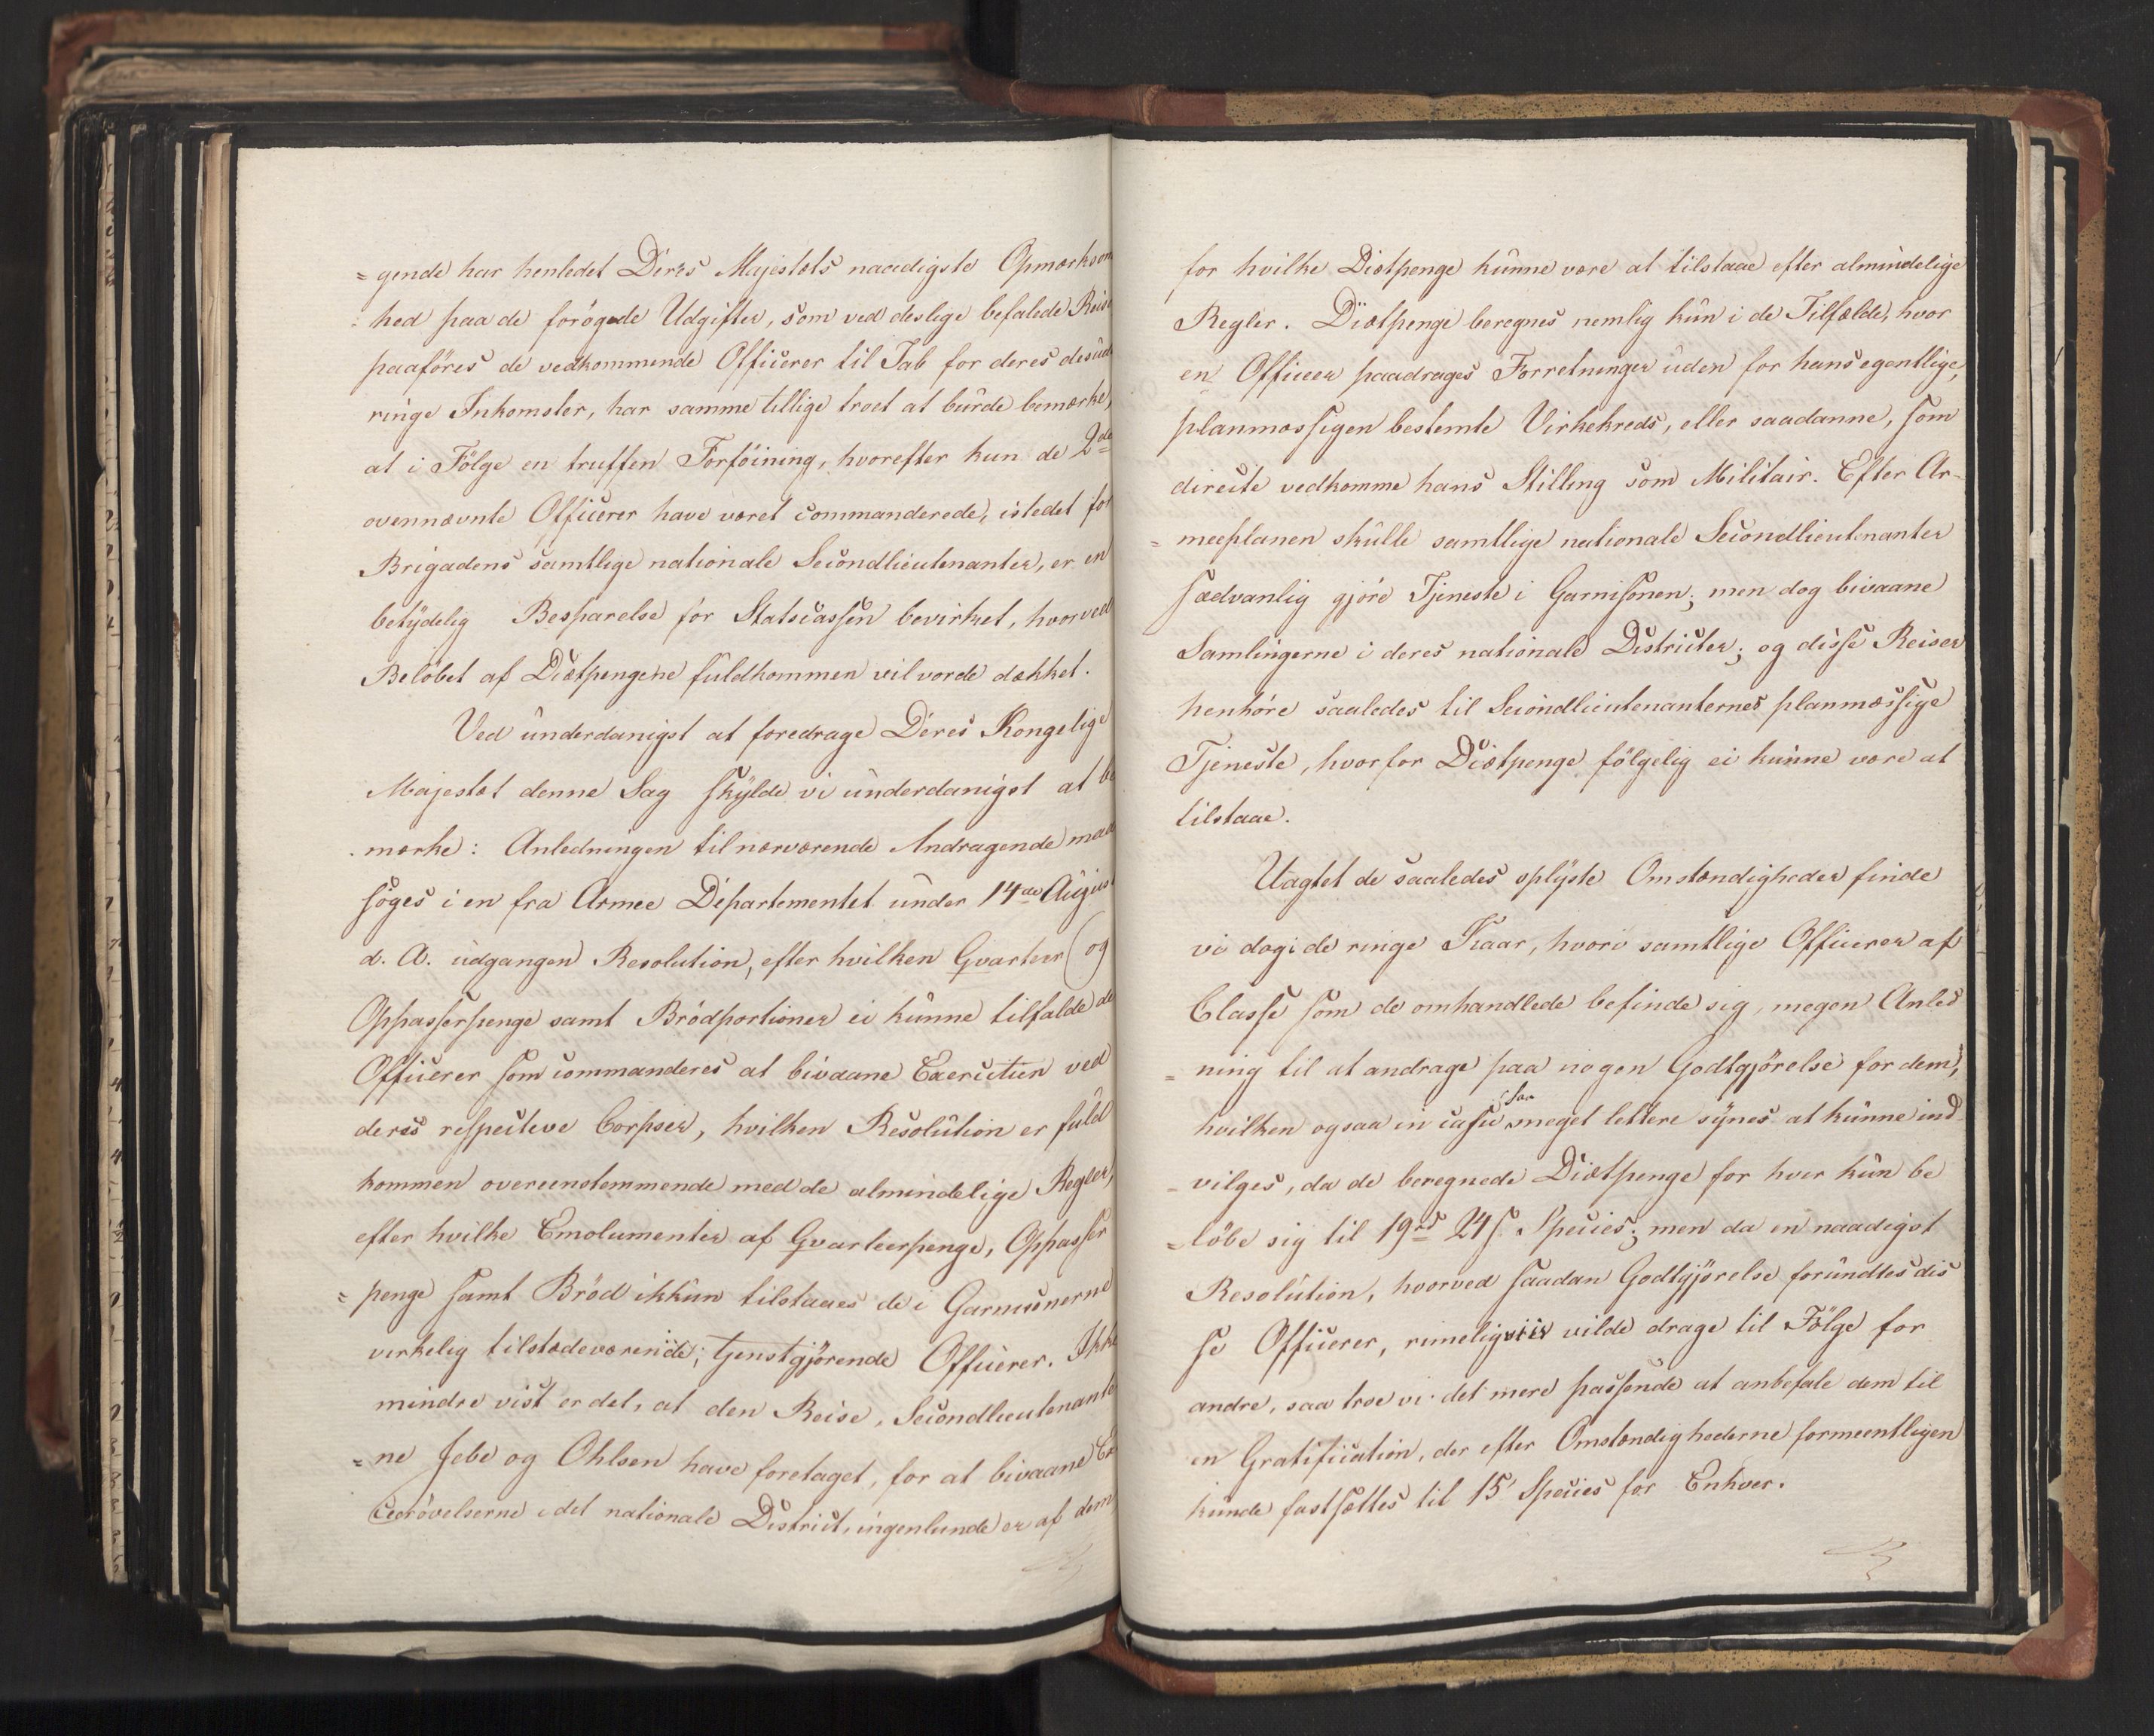 =gende har henledet Deres Majestæts naadigste Opmærksom
=hed paa de forøgede Udgifter, som ved deslige befalede Reise
paaføres de vedkommende Officerer til Tab for deres desuden
ringe Inkomster, har samme tillige troet at burde bemærke,
at i Følge en truffen Forføining, hvorefter kun de 2de
ovennævnte Officerer have været commanderede, istedet for
Brigadens samtlige nationale Secondlieutenanter, er en
betydelig Besparelse for Statscassen bevirket, hvorved
Beløbet af Diætpengene fuldkommen vil vorde dækket.
Ved underdanigst at foredrage Deres Kongelige
Majestæt denne Sag skylde vi underdanigst at be
mærke: Anledningen til nærværende Andragende maa
søges i en fra Armee Departementet under 14de August
d. A. udgangen Resolution, efter hvilken Qvarteer og
Oppasserpenge samt Brødportioner ei kunne tilfalde de
Officerer som commanderes at bivaane Exercitien ved
deres respective Corpser, hvilken Resolution er fuld
kommen overeenstemmende med de almindelige Regler,
efter hvilke Emolumenter af Qvarteerpenge, Oppasser
=penge samt Brød ikkun tilstaaes de i Garnisonerne
virkelig tilstædeværende, tjenstgjørende Officerer. Ikke
mindre vist er det, at den Reise, Secondlieutenante
=ne Jebe og Ohlsen have foretaget, for at bivaane Ex
ceerøvelserne i det nationale District, ingenlunde er af dem,
for hvilke Diætpenge kunne være at tilstaae efter almindelige
Regler. Diætpenge beregnes nemlig kun i de Tilfælde, hvor
en Officeer paadrages Forretninger uden for hans egentlige,
planmæssigen bestemte Virkekreds, eller saadanne, som
directe vedkomme hans Stilling som Militair. Efter Ar-
=meeplanen skulle samtlige nationale Secondlieutenanter
sædvanlig gjøre Tjeneste i Garnisonen; men dog bivaane
Samlingerne i deres nationale Districter; og disse Reiser
henhøre saaledes til Secondlieutenanternes planmæssige
Tjeneste, hvorfor Diætpenge følgelig ei kunne være at
tilstaae.
Uagtet de saaledes oplyste Omstændigheder finde
vi dog i de ringe Kaar, hvori samtlige Officerer af
Classe som de omhandlede befinde sig, megen Anled
=ning til at andrage paa nogen Godtgjørelse for dem,
hvilken ogsaa in casu saa meget lettere synes at kunne ind
=vilges, da de beregnede Diætpenge for hver kun be
=løbe sig til 19rd 24s Species; men da en naadigst
Resolution, hvorved saadan Godtgjørelse forundtes dis
se Officerer, rimeligviis vilde drage til Følge for
andre, saa troe vi det mere passende at anbefale dem til
en Gratification, der efter Omstændighederne formeentligen
kunde fastsættes til 15 Species for Enhver.